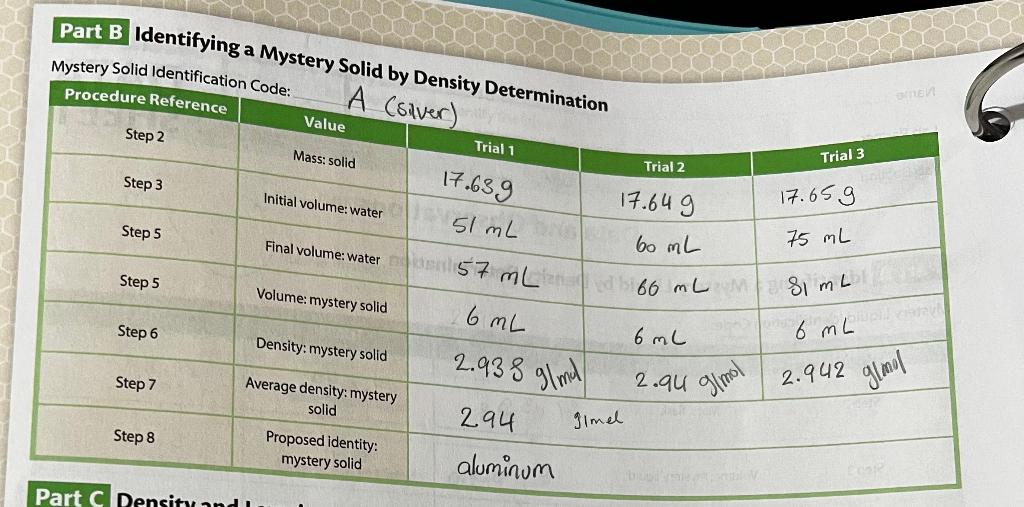 Part B Identifying a Mystery Solid by Density Determination
Mystery Solid Identification Code: A (silver)
Procedure Reference Value Trial 1 Trial 2 Trial 3
Step 2 Mass: solid 17.63g 17.64 g 17.65 g
Step 3 Initial volume: water 51 mL 60 mL 75 mL
Step 5 Final volume: water 57 mL 66 mL 81 mL
Step 5 Volume: mystery solid 6 mL 6 mL 6 mL
Step 6 Density: mystery solid 2.938 g/mol 2.94 g/mol 2.942 g/mol
Step 7 Average density: mystery
solid 2.94 g/mol
Step 8 Proposed identity:
mystery solid aluminum
Part C Density and